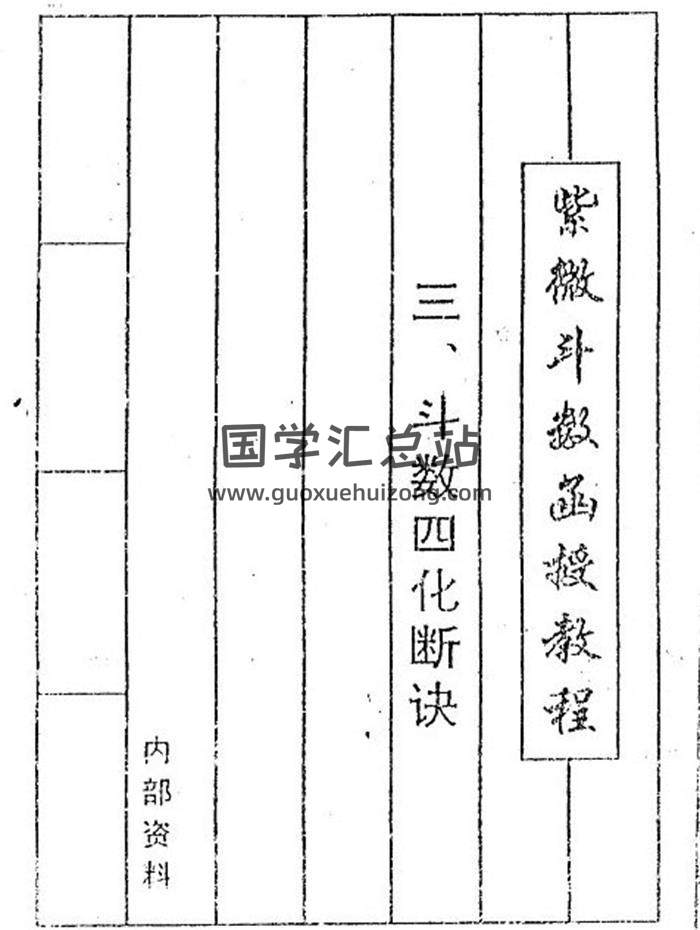 紫微斗数函授教程
三、斗数四化断诀
内部资料
国学汇总站
www.guoxuehuizong.com